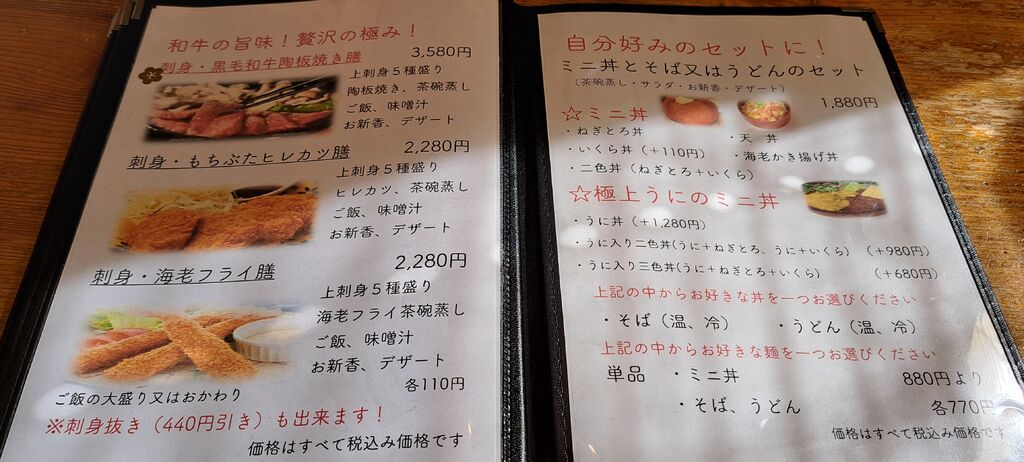 和牛の旨味！贅沢の極み！
刺身・黒毛和牛陶板焼き膳
3,580円
上刺身５種盛り
陶板焼き、茶碗蒸し
ご飯、味噌汁
お新香、デザート
刺身・もちぶたヒレカツ膳
2,280円
上刺身５種盛り
ヒレカツ、茶碗蒸し
ご飯、味噌汁
お新香、デザート
刺身・海老フライ膳
2,280円
上刺身５種盛り
海老フライ茶碗蒸し
ご飯、味噌汁
お新香、デザート
ご飯の大盛り又はおかわり 各110円
※刺身抜き（440円引き）も出来ます！
価格はすべて税込み価格です
自分好みのセットに！
ミニ丼とそば又はうどんのセット
（茶碗蒸し・サラダ・お新香・デザート）
1,880円
☆ミニ丼
・ねぎとろ丼 ・天 丼
・いくら丼（＋110円） ・海老かき揚げ丼
・二色丼（ねぎとろ＋いくら）
☆極上うにのミニ丼
・うに丼（＋1,280円）
・うに入り二色丼(うに＋ねぎとろ、うに＋いくら) （＋980円）
・うに入り三色丼(うに＋ねぎとろ＋いくら) （＋680円）
上記の中からお好きな丼を一つお選びください
・そば（温、冷） ・うどん（温、冷）
上記の中からお好きな麺を一つお選びください
単品 ・ミニ丼 880円より
・そば、うどん 各770円
価格はすべて税込み価格です